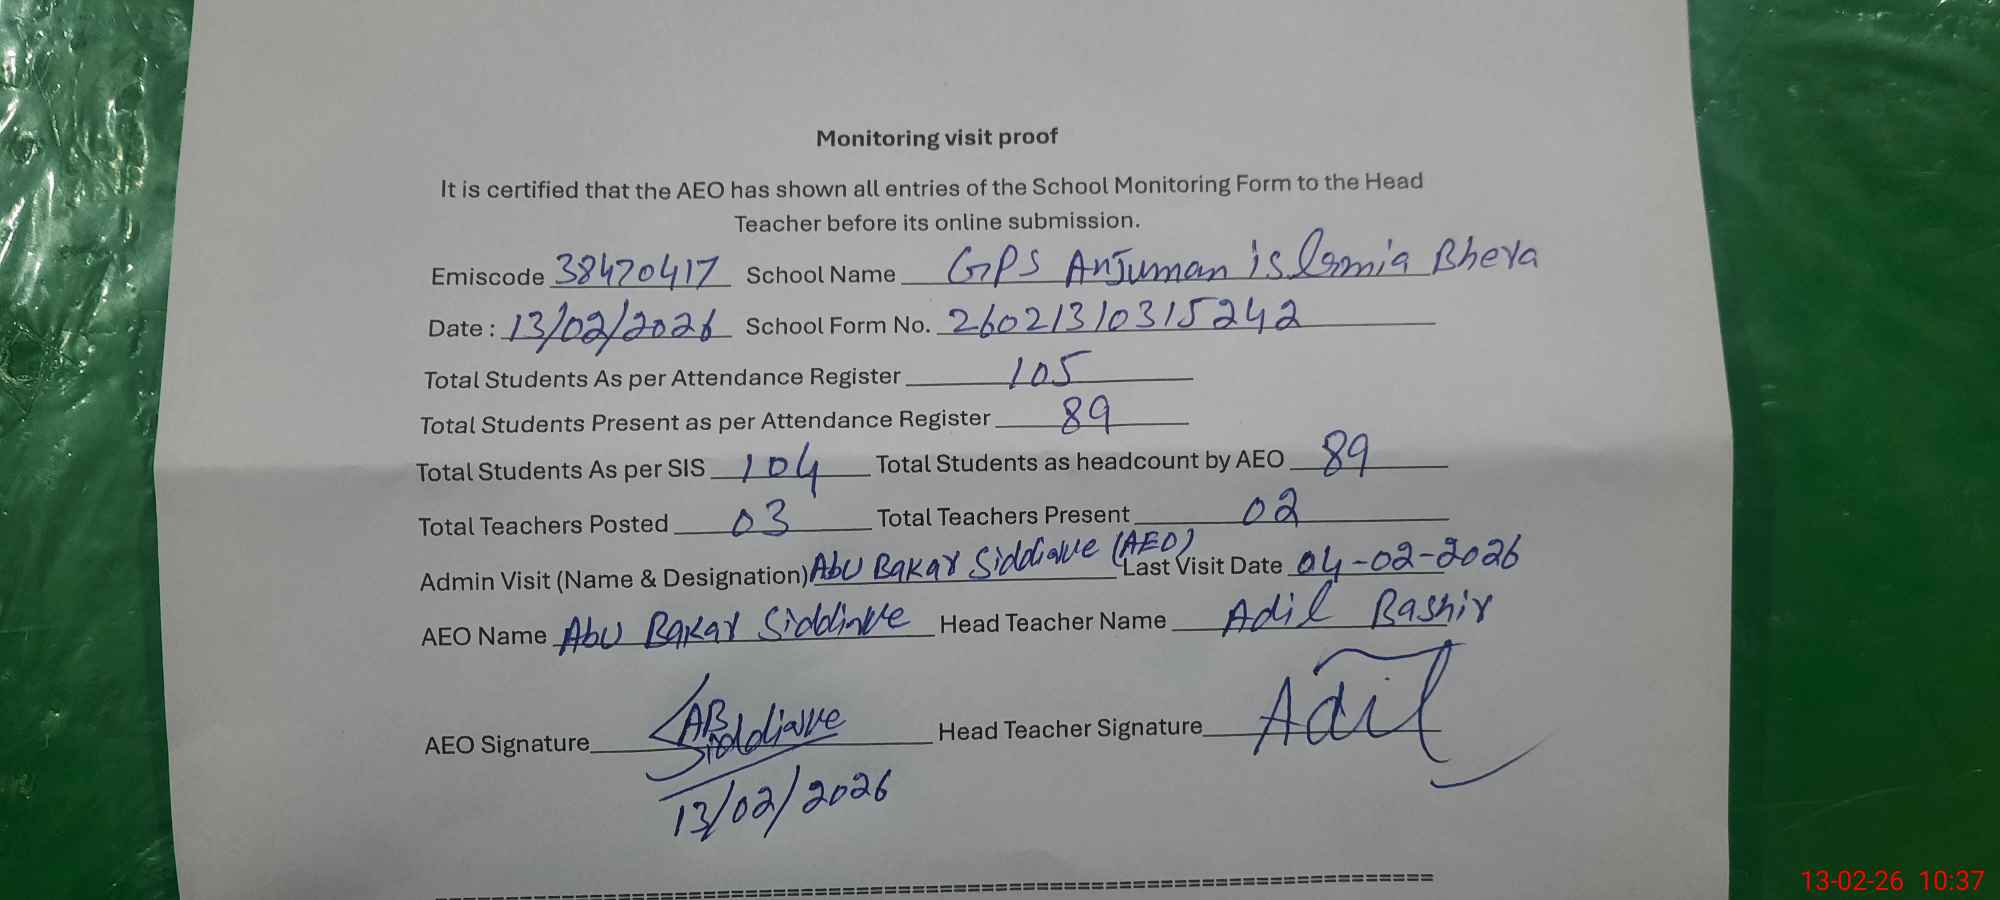 Monitoring visit proof
It is certified that the AEO has shown all entries of the School Monitoring Form to the Head
Teacher before its online submission.
Emiscode 38470417 School Name GPS Anjuman islamia Bhera
Date : 13/02/2026 School Form No. 26021310315242
Total Students As per Attendance Register 105
Total Students Present as per Attendance Register 89
Total Students As per SIS 104 Total Students as headcount by AEO 89
Total Teachers Posted 03 Total Teachers Present 02
Admin Visit (Name & Designation) Abu Bakar Siddique (AEO) Last Visit Date 04-02-2026
AEO Name Abu Bakar Siddique Head Teacher Name Adil Bashir
AEO Signature AB Siddique Head Teacher Signature Adil
13/02/2026
13-02-26 10:37